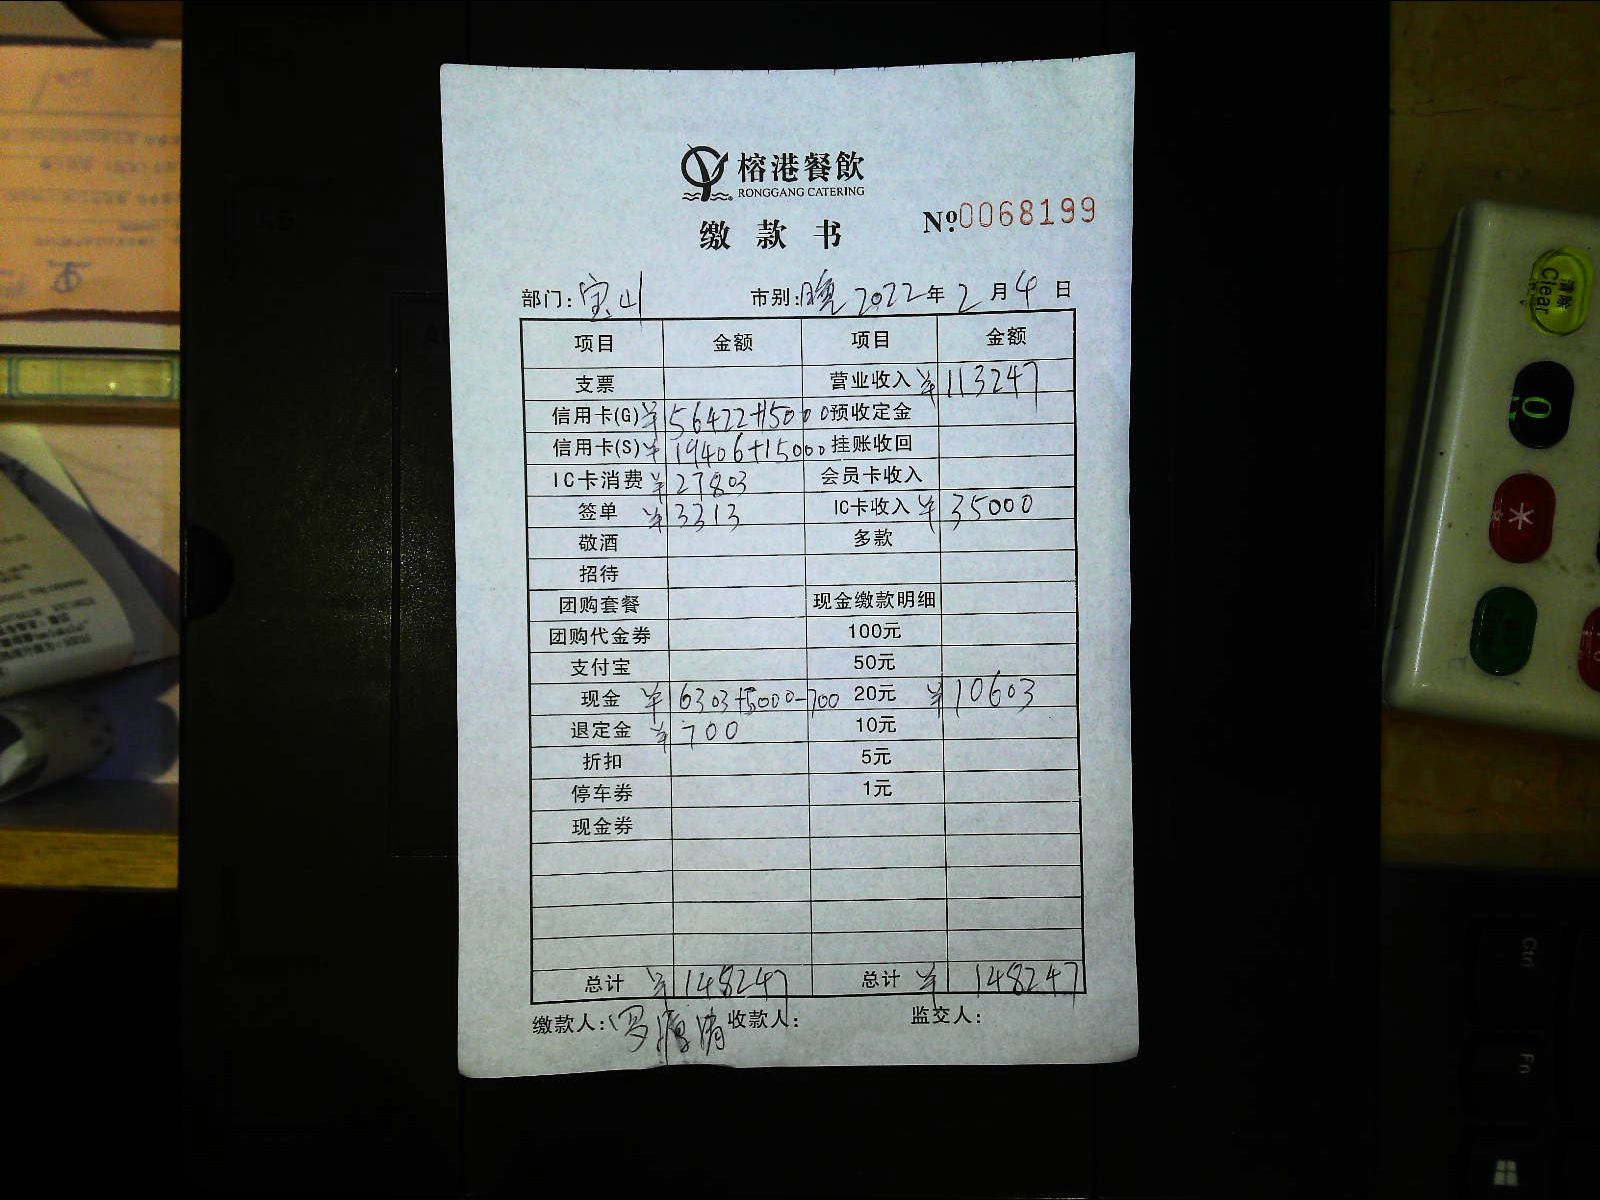 榕港餐飲
RONGGANG CATERING
缴款书 №0068199
部门:宝山 市别:晚 2022年2月4日
项目 金额 项目 金额
支票 营业收入 ¥113247
信用卡(G) ¥56422+15000 预收定金
信用卡(S) ¥19406+15000 挂账收回
IC卡消费 ¥27803 会员卡收入
签单 ¥3313 IC卡收入 ¥35000
敬酒 多款
招待
团购套餐 现金缴款明细
团购代金券 100元
支付宝 50元
现金 ¥6303+5000-700 20元 ¥10603
退定金 ¥700 10元
折扣 5元
停车券 1元
现金券
总计 ¥148247 总计 ¥148247
缴款人:罗 收款人: 监交人:
清除
Clear
0
*
Ctrl
Fn